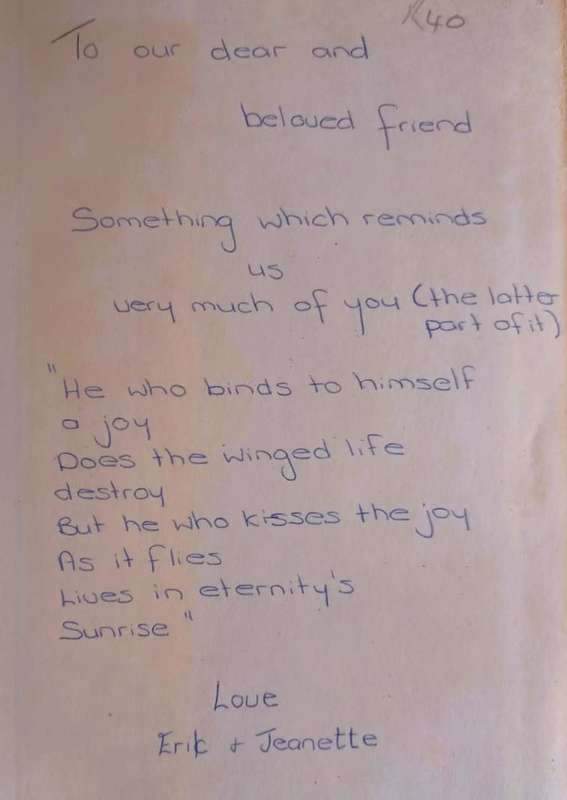 R40
To our dear and
beloved friend
Something which reminds
us
very much of you (the latter
part of it)
"He who binds to himself
a joy
Does the winged life
destroy
But he who kisses the joy
As it flies
Lives in eternity's
Sunrise"
Love
Erik + Jeanette